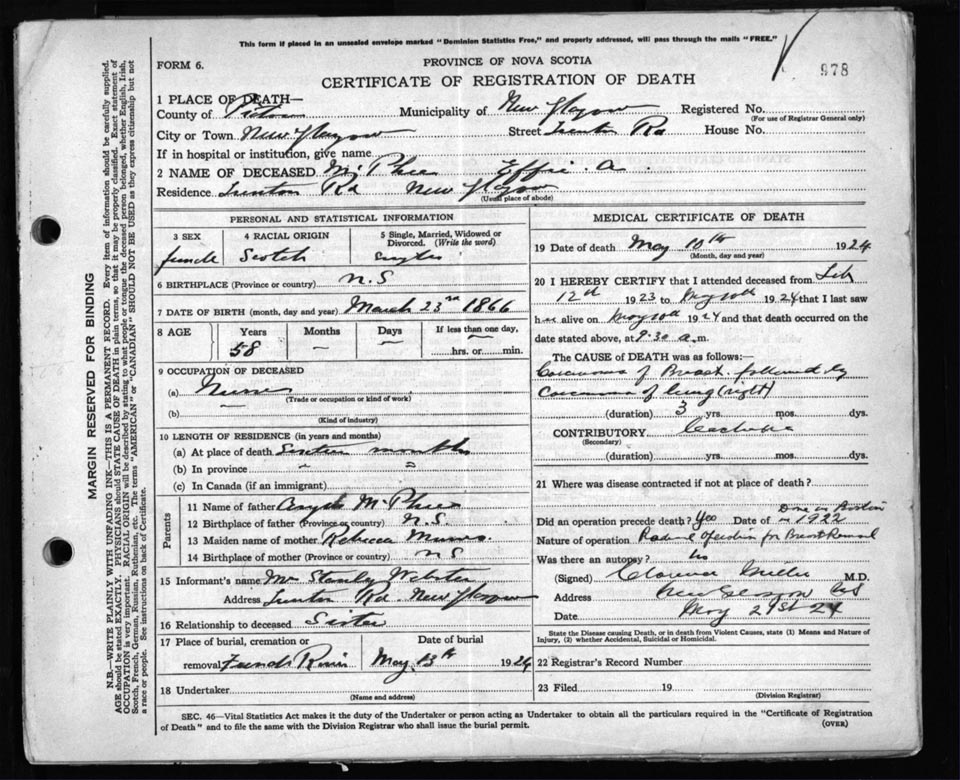 This form if placed in an unsealed envelope marked "Dominion Statistics Free," and properly addressed, will pass through the mails "FREE."
FORM 6.
PROVINCE OF NOVA SCOTIA
978
CERTIFICATE OF REGISTRATION OF DEATH
1 PLACE OF DEATH—
County of Pictou Municipality of New Glasgow Registered No.
(For use of Registrar General only)
City or Town New Glasgow Street Trenton Rd House No.
If in hospital or institution, give name
2 NAME OF DECEASED McPhee Effie A.
Residence Trenton Rd New Glasgow
(Usual place of abode)
PERSONAL AND STATISTICAL INFORMATION
3 SEX 4 RACIAL ORIGIN 5 Single, Married, Widowed or Divorced. (Write the word)
female Scotch single
6 BIRTHPLACE (Province or country) N.S
7 DATE OF BIRTH (month, day and year) March 23rd 1866
8 AGE Years Months Days If less than one day,
58 — — hrs. or min.
9 OCCUPATION OF DECEASED
(a) Nurse
(Trade or occupation or kind of work)
(b) —
(Kind of industry)
10 LENGTH OF RESIDENCE (in years and months)
(a) At place of death Sixteen months
(b) In province " "
(c) In Canada (if an immigrant)
Parents
11 Name of father McPhee
12 Birthplace of father (Province or country) N.S.
13 Maiden name of mother Rebecca Munro
14 Birthplace of mother (Province or country) N S
15 Informant's name Mrs Stanley Webster
Address Trenton Rd. New Glasgow
16 Relationship to deceased Sister
17 Place of burial, cremation or Date of burial
removal French River May 13th 1924
18 Undertaker
(Name and address)
MEDICAL CERTIFICATE OF DEATH
19 Date of death May 10th 1924
(Month, day and year)
20 I HEREBY CERTIFY that I attended deceased from Feb
12th 1923 to May 10th 1924 that I last saw
her alive on May 10th 1924 and that death occurred on
date stated above, at 9.30 a.m.
The CAUSE OF DEATH was as follows:—
Carcinoma of Breast followed by
Carcinoma of lung (right)
(duration) 3 yrs. mos. dys.
CONTRIBUTORY Cachexia
(Secondary)
(duration) yrs. mos. dys.
21 Where was disease contracted if not at place of death?
Done in Boston
Did an operation precede death? Yes Date of in 1922
Nature of operation Radical operation for Breast Removal
Was there an autopsy? No
(Signed) Clarence Miller M.D.
Address New Glasgow NS
Date May 21st 24
State the Disease causing Death, or in death from Violent Causes, state (1) Means and Nature of
Injury, (2) whether Accidental, Suicidal or Homicidal.
22 Registrar's Record Number
23 Filed 19
(Division Registrar)
SEC. 46—Vital Statistics Act makes it the duty of the Undertaker or person acting as Undertaker to obtain all the particulars required in the "Certificate of Registration
of Death" and to file the same with the Division Registrar who shall issue the burial permit.
(OVER)
MARGIN RESERVED FOR BINDING
N.B.—WRITE PLAINLY WITH UNFADING INK—THIS IS A PERMANENT RECORD. Every item of information should be carefully supplied.
AGE should be stated EXACTLY. PHYSICIANS should STATE CAUSE OF DEATH in plain terms, so that it may be properly classified. Exact statement of
OCCUPATION is very important. RACIAL ORIGIN will be described by stating to what people or tongue the deceased person belonged, whether English, Irish,
Scotch, French, German, Russian, Ruthenian, etc. The terms "AMERICAN" or "CANADIAN" SHOULD NOT BE USED as they express citizenship but not
a race or people. See instructions on back of Certificate.